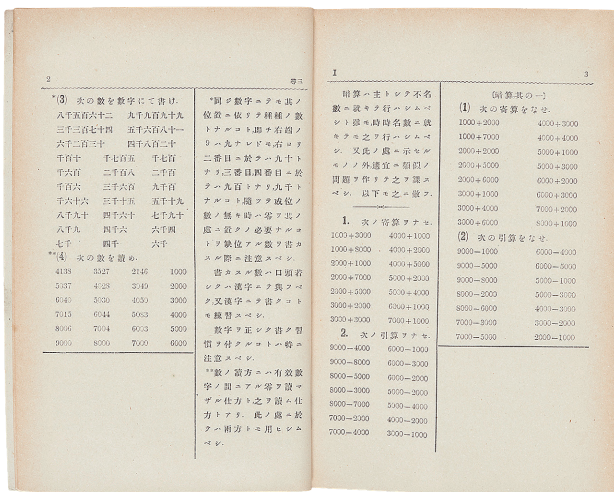 2
尋三
*(3) 次の數を數字にて書け.
八千五百六十二 九千九百九十九
三千三百七十四 五千六百八十一
六千二百三十 四千八百二十
千百十 千七百五 千七百
千六百 二千百八 二千百
千百六 三千六百 九千百
千六十六 三千五十 五千十九
八千九十 四千六十 七千九十
八千九 四千六 六千四
七千 四千 六千
**(4) 次の數を讀め.
4138 3527 2146 1000
3049 2000
6045 5030 4050 3000
7015 6044 5083 4000
8006 7004 6003 5000
9000 8000 7000 6000
*同ジ數字ニテモ其ノ
位置ニ依リテ種種ノ數
トナルコト, 即チ右端ノ
9ハ九ナレドモ, 右ヨリ
二番目ニ於テハ九十ト
ナリ, 三番目, 四番目ニ於
テハ九百トナリ, 九千ト
ナルコト, 隨ツテ或位ノ
數ノ無キ時ハ零ヲ其ノ
處ニ置クノ必要ナルコ
トヲ缺位アル數ヲ書カ
スル際ニ注意スベシ.
書カスル數ハ口頭若
シクハ漢字ニテ與フベ
ク, 又漢字ニテ書クコト
モ練習スベシ.
數字ヲ正シク書ク習
慣ヲ付クルコトハ特ニ
注意スベシ.
**數ノ讀方ニハ有效數
字ノ間ニアル零ヲ讀マ
ザル仕方ト之ヲ讀ム仕
方トアリ. 此ノ處ニ於
テハ兩方トモ用ヒシム
ベシ.
I
3
暗算ハ主トシテ不名
數ニ就キテ行ハシムベ
シト雖モ, 時時名數ニ就
キテモ之ヲ行ハシムベ
シ. 又此ノ處ニ示セル
モノノ外適宜ニ類似ノ
問題ヲ作リテ之ヲ課ス
ベシ. 以下モ之ニ倣フ.
1. 次ノ寄算ヲナセ.
1000+3000 4000+1000
1000+8000 4000+2000
2000+1000 4000+5000
2000+7000 5000+2000
2000+5000 5000+4000
3000+2000 6000+1000
3000+3000 7000+1000
2. 次ノ引算ヲナセ.
9000-4000 6000-1000
9000-8000 6000-3000
8000-5000 6000-2000
8000-2000 5000-4000
8000-7000 5000-4000
7000-2000 4000-2000
7000-4000 3000-1000
[暗算其の一]
(1) 次の寄算をなせ.
1000+2000 4000+3000
1000+4000 5000+1000
2000+2000 5000+3000
2000+6000 6000+2000
3000+1000 6000+3000
3000+4000 7000+2000
3000+6000 8000+1000
(2) 次の引算をなせ.
9000-1000 6000-4000
9000-5000 6000-5000
8000-5000 5000-3000
8000-6000 5000-1000
7000-3000 3000-2000
7000-5000 2000-1000